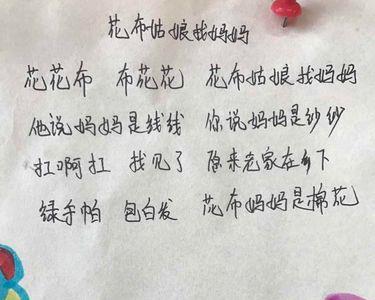 花布姑娘找妈妈
花花布 布花花 花布姑娘找妈妈
他说妈妈是线线 你说妈妈是纱纱
扛啊扛 找见了 原来老家在乡下
绿手帕 包白发 花布妈妈是棉花